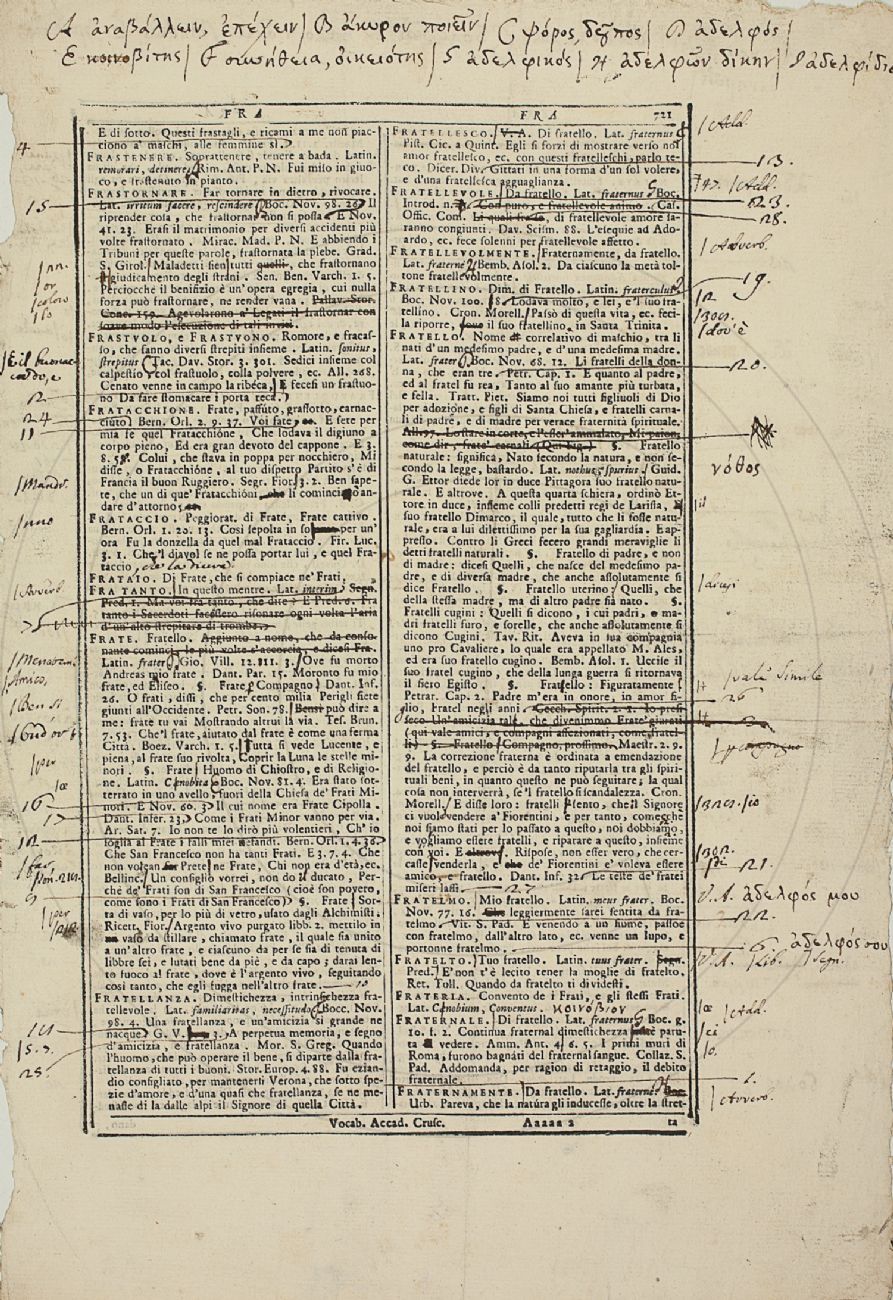 A ἀναβάλλειν, ἐπέχειν / B ἄκυρον ποιεῖν / C φόρος, / D ἀδελφός /
E κοινοβίτης / F συνήθεια, οἰκειότης / G ἀδελφικός / H ἀδελφῶν δίκην /
FRA FRA 721
E di sotto. Questi frastagli, e ricami a me non piac-
ciono a' maschi, alle femmine sì.
FRASTENERE. Soprattenere, tenere a bada. Latin.
remorari, detinere. Rim. Ant. P. N. Fui miso in giuo-
co, e frastenuto in pianto.
FRASTORNARE. Far tornare in dietro, rivocare.
Lat. irritum facere, rescindere. Boc. Nov. 98. 26. Il
riprender cosa, che frastornar non si possa. E Nov.
41. 23. Erasi il matrimonio per diversi accidenti più
volte frastornato. Mirac. Mad. P. N. E abbiendo i
Tribuni per queste parole, frastornata la plebe. Grad.
S. Girol. Maladetti sien tutti quelli, che frastornano
giudicamento degli strani. Sen. Ben. Varch. 1. 5.
Perciocchè il benifizio è un'opera egregia, cui nulla
forza può frastornare, ne render vana. Pallav. Stor.
Conc. 159. Agevolarono a' Legati il frastornar con
soave modo l'esecuzione di tali inviti.
FRASTUOLO, e FRASTUONO. Romore, e fracas-
so, che fanno diversi strepiti insieme. Latin. sonitus,
strepitus. Tac. Dav. Stor. 2. 301. Sedici insieme col
calpestio col frastuolo, colla polvere, ec. All. 268.
Cenato venne in campo la ribeca, E fecesi un frastuo-
no Da fare stomacare i porta teca.
FRATACCHIONE. Frate, passuto, grassotto, carnac-
ciuto. Bern. Orl. 2. 9. 37. Voi fate, ec. E sete per
mia fe quel Fratacchione. Che lodava il digiuno a
corpo pieno, Ed era gran devoto del cappone. E 3.
8. 58. Colui, che stava in poppa per nocchiero, Mi
disse, o Fratacchione, al tuo dispetto Partito s'è di
Francia il buon Ruggiero. Segr. Fior. 3. 2. Ben sape-
te, che un di que' Fratacchioni, che li cominciò an-
dare d'attorno,
FRATACCIO. Peggiorat. di Frate, Frate cattivo.
Bern. Orl. 1. 20. 13. Così sepolta in per un'
ora Fu la donzella da quel mal Frataccio. Fir. Luc.
3. 1. Che 'l diavol se ne possa portar lui, e quel Fra-
taccio
FRATAIO. Di Frate, che si compiace ne' Frati.
FRA TANTO. In questo mentre. Lat. interim. Segn.
Pred. 1. Ma voi fra tanto, che dite? E Pred. 6. Fra
tanto i Sacerdoti facessero risonare ogni volta l'aria
d'un' alto strepitare di trombe.
FRATE. Fratello. Aggiunto a nome, che da conso-
nante cominci, le più volte s'accorcia, e dicesi Fra.
Latin. frater. Gio. Vill. 12. 111. 3. Ove fu morto
Andreas mio frate. Dant. Par. 15. Moronto fu mio
frate, ed Eliseo. §. Frate, Compagno. Dant. Inf.
26. O frati, dissi, che per cento milia Perigli siete
giunti all'Occidente. Petr. Son. 78. Bensì può dire a
me: frate tu vai Mostrando altrui la via. Tes. Brun.
7. 53. Che 'l frate, aiutato dal frate è come una ferma
Città. Boez. Varch. 1. 5. Tutta si vede Lucente, e
piena, al frate suo rivolta, Coprir la Luna le stelle mi-
nori. §. Frate, Huomo di Chiostro, e di Religio-
ne. Latin. Cenobita. Boc. Nov. 81. 4. Era stato sot-
terrato in uno avello, fuori della Chiesa de' Frati Mi-
nori. E Nov. 60. 3. Il cui nome era Frate Cipolla.
Dant. Infer. 23. Come i Frati Minor vanno per via.
Ar. Sat. 7. Io non te lo dirò più volentieri, Ch' io
soglia al Frate i falli miei nefandi. Bern. Orl. 1. 4. 36.
Che San Francesco non ha tanti Frati. E 3. 7. 4. Che
non volean Prete, ne Frate, Chi non era d'età, ec.
Bellinc. Un consiglio vorrei, non do il ducato, Per-
chè de' Frati son di San Francesco (cioè son povero,
come sono i Frati di San Francesco) §. Frate, Sor-
ta di vaso, per lo più di vetro, usato dagli Alchimisti.
Ricett. Fior. Argento vivo purgato libb. 2. mettilo in
un vaso da stillare, chiamato frate, il quale sia unito
a un'altro frate, e ciascuno da per se sia di tenuta di
libbre sei, e lutati bene da piè, e da capo; darai len-
to fuoco al frate, dove è l'argento vivo, seguitando
così tanto, che egli fugga nell'altro frate.
FRATELLANZA. Dimestichezza, intrinsichezza fra-
tellevole. Lat. familiaritas, necessitudo. Bocc. Nov.
98. 4. Una fratellanza, e un'amicizia sì grande ne
nacque. G. V. 3. A perpetua memoria, e segno
d'amicizia, e fratellanza. Mor. S. Greg. Quando
l'huomo, che può operare il bene, si diparte dalla fra-
tellanza di tutti i buoni. Stor. Europ. 4. 88. Fu ezian-
dio consigliato, per mantenersi Verona, che sotto spe-
zie d'amore, e d'una quasi che fratellanza, se ne me-
nasse di la dalle alpi il Signore di quella Città.
FRATELLESCO. V. A. Di fratello. Lat. fraternus
Pist. Cic. a Quint. Egli si forzi di mostrare verso noi
amor fratellesco, ec. con questi fratelleschi, parlo te-
co. Dicer. Div. Gittati in una forma d'un sol volere,
e d'una fratellesca agguaglianza.
FRATELLEVOLE. Da fratello. Lat. fraternus. Boc.
Introd. n. Con puro, e fratellevole animo. Cas.
Offic. Com. Li quali frate, di fratellevole amore sa-
ranno congiunti. Dav. Scism. 88. L'esequie ad Ado-
ardo, ec. fece solenni per fratellevole affetto.
FRATELLEVOLMENTE. Fraternamente, da fratello.
Lat. fraterne. Bemb. Asol. 2. Da ciascuno la metà tol-
tone fratellevolmente.
FRATELLINO. Dim. di Fratello. Latin. fraterculus
Boc. Nov. 100. 18. Lodava molto, e lei, e 'l suo fra-
tellino. Cron. Morell. Passò di questa vita, ec. feci-
la riporre, il suo fratellino, in Santa Trinita.
FRATELLO. Nome correlativo di maschio, tra li
nati d'un medesimo padre, e d'una medesima madre.
Lat. frater. Boc. Nov. 68. 12. Li fratelli della don-
na, che eran tre. Petr. Cap. 1. E quanto al padre,
ed al fratel fu rea, Tanto al suo amante più turbata,
e fella. Tratt. Piet. Siamo noi tutti figliuoli di Dio
per adozione, e figli di Santa Chiesa, e fratelli carna-
li di padre, e di madre per verace fraternità spirituale.
All. 97. Lo stare in corte, e l'esser' ammalato, Mi paion,
come dir, frate' carnali. Qui fig. §. Fratello
naturale: significa, Nato secondo la natura, e non se-
condo la legge, bastardo. Lat. nothus, spurius. Guid.
G. Ettor diede lor in duce Pittagora suo fratello natu-
rale. E altrove. A questa quarta schiera, ordinò Et-
tore in duce, insieme colli predetti regi de Larissa,
suo fratello Dimarco, il quale, tutto che li fosse natu-
rale, era a lui dilettissimo per la sua gagliardia. Eap-
presso. Contro li Greci fecero grandi meraviglie li
detti fratelli naturali. §. Fratello di padre, e non
di madre: dicesi Quelli, che nasce del medesimo pa-
dre, e di diversa madre, che anche assolutamente si
dice Fratello. §. Fratello uterino: Quelli, che
della stessa madre, ma di altro padre sia nato. §.
Fratelli cugini: Quelli si dicono, i cui padri, o ma-
dri fratelli furo, e sorelle, che anche assolutamente si
dicono Cugini. Tav. Rit. Aveva in sua compagnia
uno pro Cavaliere, lo quale era appellato M. Ales,
ed era suo fratello cugino. Bemb. Asol. 1. Uccise il
suo fratel cugino, che della lunga guerra si ritornava
il fiero Egisto. §. Fratello: Figuratamente
Petrar. Cap. 2. Padre m'era in onore, in amor fi-
glio, Fratel negli anni. Cecch. Spirit. 2. 1. Io presi
seco Un'amicizia tale, che divenimmo Frate' giurati
(qui vale amici, e compagni affezionati, come fratel-
li) §. Fratello, Compagno, prossimo. Maestr. 2. 9.
9. La correzione fraterna è ordinata a emendazione
del fratello, e perciò è da tanto ripurarla tra gli spiri-
tuali beni, in quanto questo ne può seguitare; la qual
cosa non interverrà, se 'l fratello si scandalezza. Cron.
Morell. E disse loro: fratelli, sento, che il Signore
ci vuol vendere a' Fiorentini, e per tanto, comecchè
noi siamo stati per lo passato a questo, noi dobbiamo,
e vogliamo essere fratelli, e riparare a questo, insieme
con voi. E altrove. Rispose, non esser vero, che cer-
casse venderla, e che de' Fiorentini e' voleva essere
amico, e fratello. Dant. Inf. 32. Le teste de' fratei
miseri lassi. 27.
FRATELMO. Mio fratello. Latin. meus frater. Boc.
Nov. 77. 16. Che leggiermente sarei sentita da fra-
telmo. Vit. S. Pad. E venendo a un fiume, passoe
con fratelmo, dall'altro lato, ec. venne un lupo, e
portonne fratelmo.
FRATELTO. Tuo fratello. Latin. tuus frater. Segn.
Pred. E' non t'è lecito tener la moglie di fratelto.
Ret. Toll. Quando da fratelto ti dividesti.
FRATERIA. Convento de i Frati, e gli stessi Frati.
Lat. Cenobium, Conventus. κοινόβιον
FRATERNALE. Di fratello. Lat. fraternus. Boc. g.
10. f. 2. Continua fraternal dimestichezza paru-
ta vedere. Amm. Ant. 4. 6. 5. I primi muri di
Roma, furono bagnati del fraternal sangue. Collaz. S.
Pad. Addomanda, per ragion di retaggio, il debito
fraternale.
FRATERNAMENTE. Da fratello. Lat. fraterne. Boc.
Urb. Pareva, che la natura gli inducesse, oltre la stret-
Vocab. Accad. Crusc. Aaaaa 2 ta
4
15
2
24
11
16
17
12
25.
Add.
13.
23.
28.
Adverb.
19.
20.
νόθος
26
21.
V. A. ἀδελφός μου
22.
6. ἀδελφός σου
Add.
Avverb.